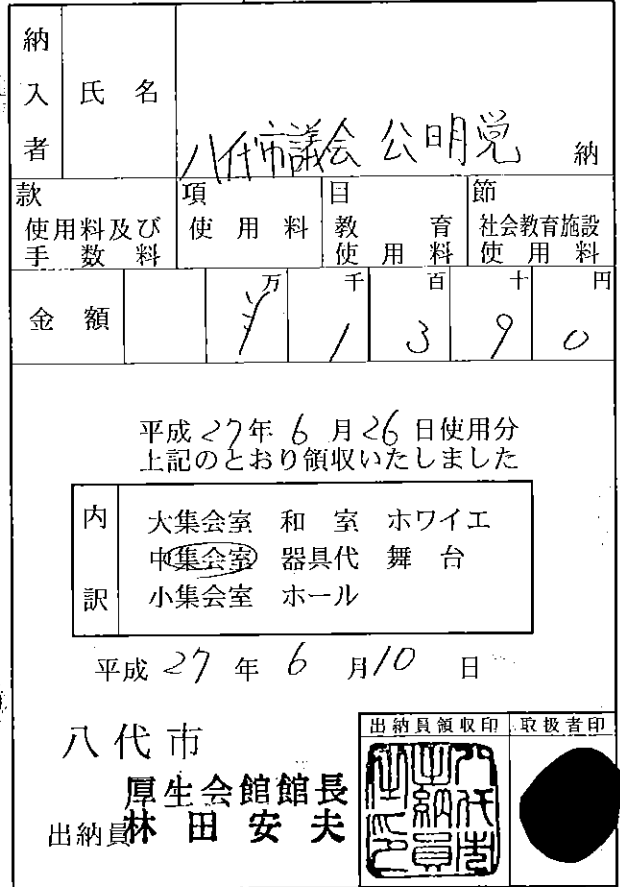 納入者
氏 名
八代市議会 公明党 納
款 項 目 節
使用料及び手数料 使用料 教育使用料 社会教育施設使用料
金 額 万 千 百 十 円
¥ 1 3 9 0
平成27年6月26日使用分
上記のとおり領収いたしました
内訳
大集会室 和 室 ホワイエ
中集会室 器具代 舞 台
小集会室 ホール
平成 27 年 6 月 10 日
八代市
厚生会館館長
出納員 林 田 安 夫
出納員領収印 取扱者印
八代市出納員之印